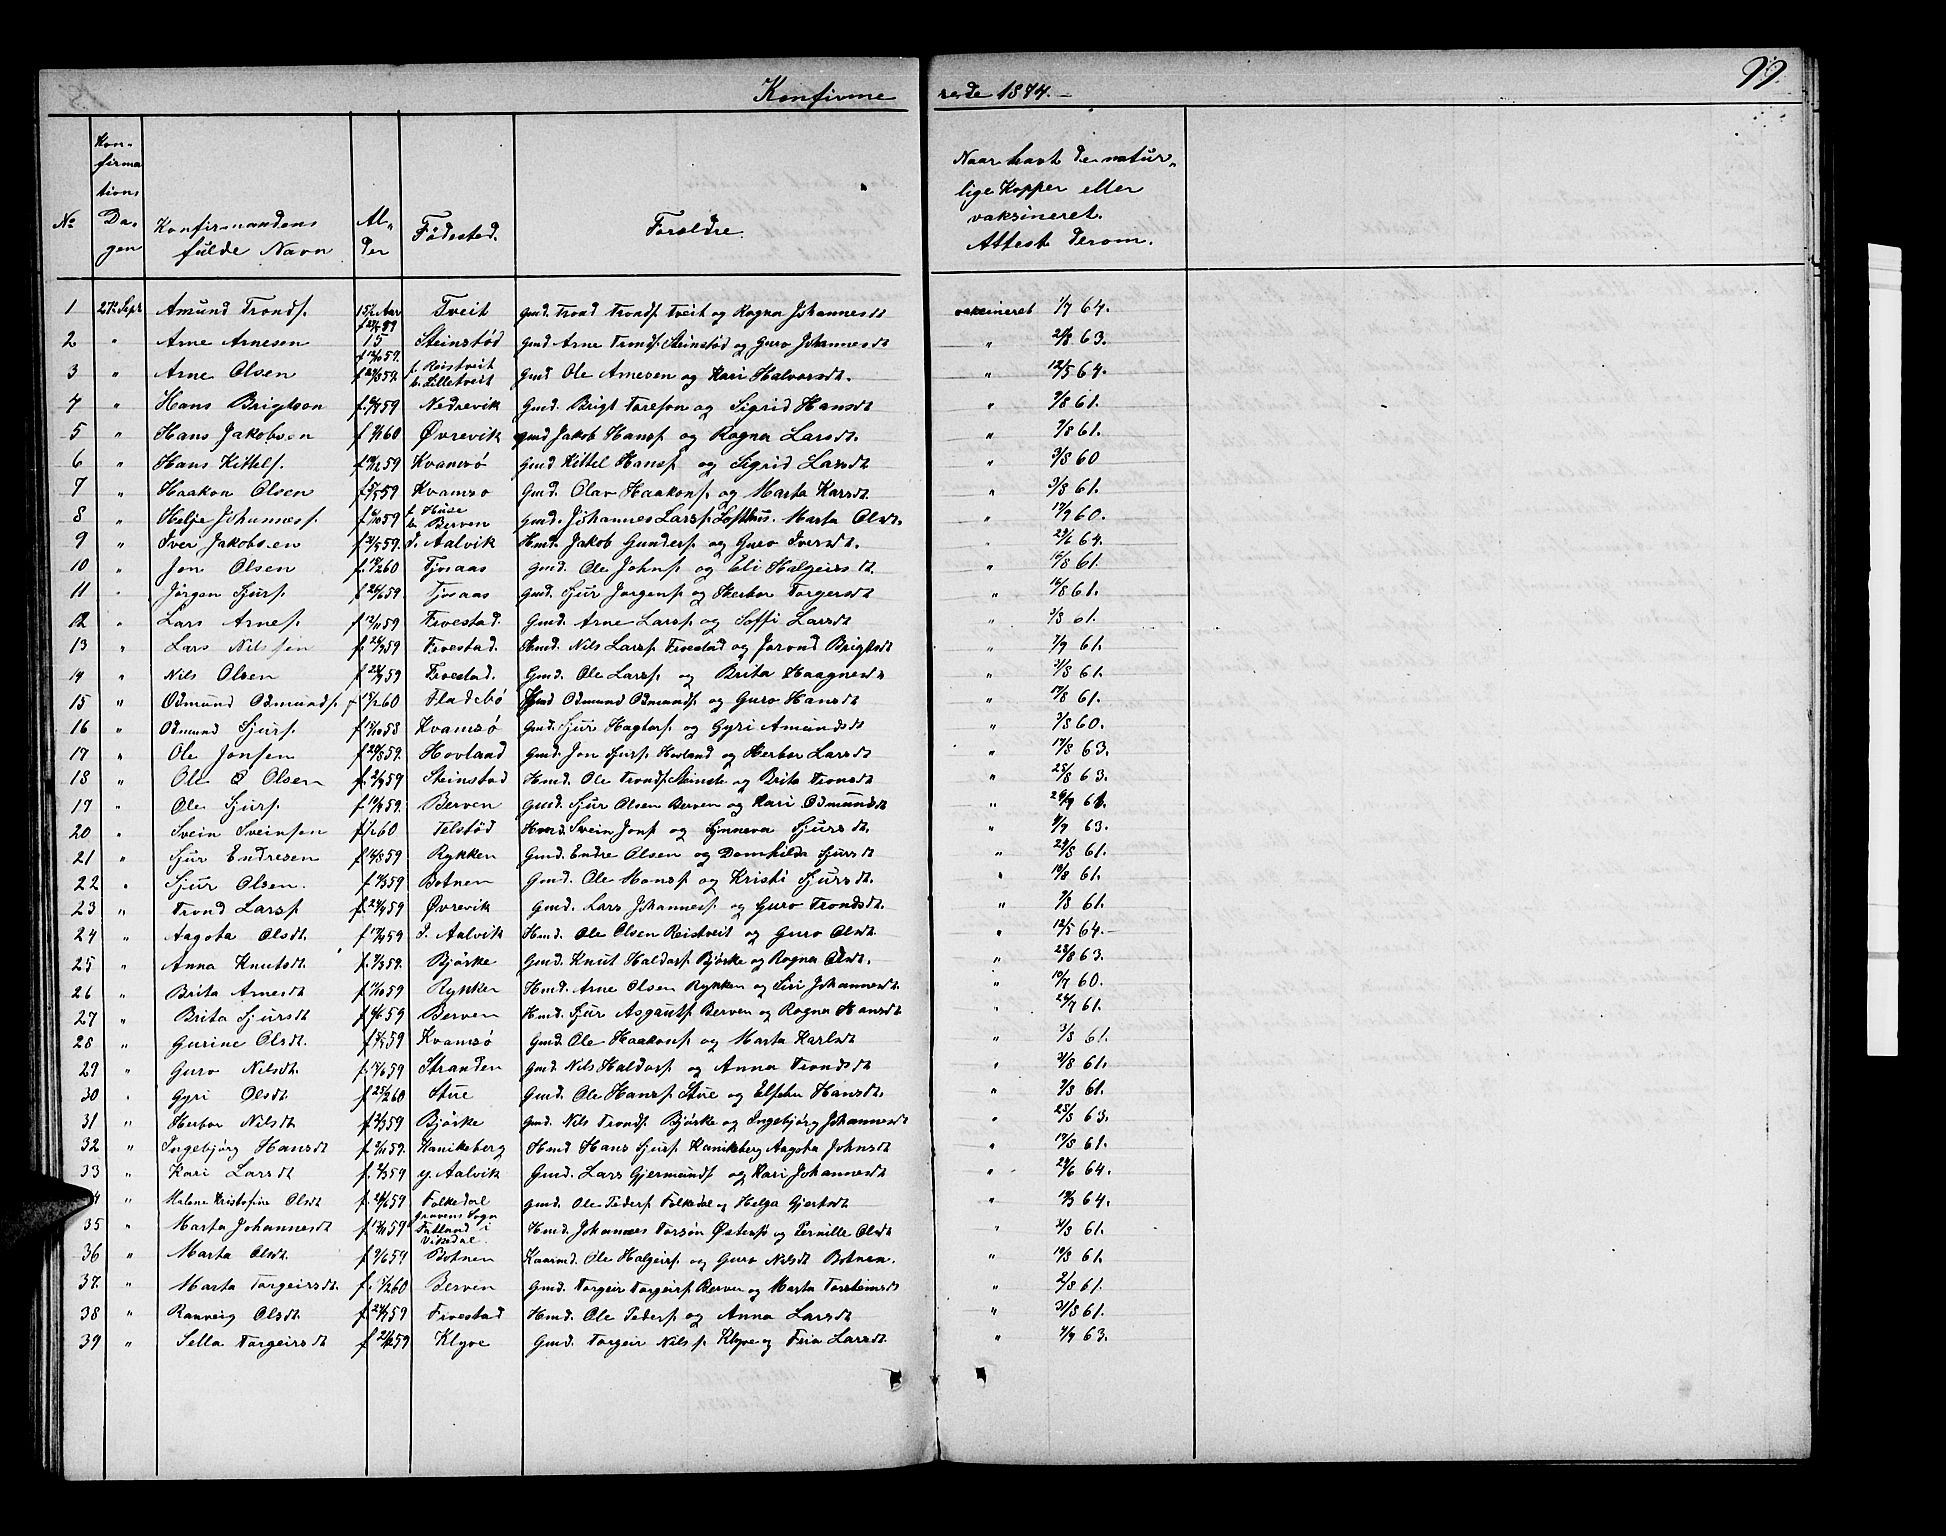 Konfirme rede 1874.
99
No
Kon-
firma
tions
Da-
gen
Konfirmandens
fulde Navn
Al-
der
Fødested.
Foreldre.
Naar havt de natur-
lige Kopper eller
vaksineret.
Attest derom.
1 27de Sept Amund Trondf. Tveit Gmd. Trond Trondf. Tveit og Ragna Johannesdt vaksineret 1/7 64.
2 " Arne Arnesen 15 Steinstød Gmd Arne Trondf. Steinstød og Guro Johannesdt " 63.
3 " Arne Olsen f. Reistveit b. Lilletveit Gmd Ole Arnesen og Kari Halvorsdt. " 12/5 64.
4 " Hans Brigtson 59 Nedrevik Gmd. Brigt Torefson og Sigrid Hansdt " 61.
5 " Hans Jakobsen 60 Øvrevik Gmd Jakob Hansf og Ragna Larsdt. " 61.
6 " Hans Kittelf. 59 Kvamsø Gmd. Kittel Hansf og Sigrid Larsdt " 3/8 60
7 " Haakon Olsen 59 Kvamsø Gmd. Olav Haakonf. og Marta Karsdt. " 3/8 61.
8 " Helje Johannesf. 59 f. Huse b. Berven Gmd. Johannes Larsf. Lofthus. Marta Olsdt. " 60.
9 " Iver Jakobsen 59. I. Aalvik Hmd. Jakob Gundersf. og Guro Iversdt. " 64.
10 " Jon Olsen 60 Tjosaas Gmd. Ole Johnf. og Eli Halgeirsdt. " 16/8 61.
11 " Jørgen Sjurf. 59 Tjosaas Gmd. Sjur Jørgenf. og Herbor Torgersdt " 16/8 61.
12 " Lars Arnef. 59 Tvestad. Gmd. Arne Larsf og Soffi Larsdt " 61.
13 " Lars Nilsfen 59 Tvestad. Hmd. Nils Larsf Tvestad og Jorand Brigtsdt " 7/9 61.
14 " Nils Olsen 59 Tvestad. Gmd. Ole Larsf. og Brita Haagnesdt " 61.
15 " Odmund Odmundf. 60 Fladebø Gmd Odmund Odmundf. og Guro Hansdt " 61.
16 " Odmund Sjurf. 58 Kvamsø Gmd. Sjur Hagtorf. og Gyri Amundsdt " 60.
17 " Ole Jonfen 59. Hovland Gmd. Jon Sjurf. Hovland og Herbor Larsdt " 63.
18 " Ole O Olsen 59 Steinstød Hmd. Ole Trondf. Steinstø og Brita Tronsdt " 25/8 63.
19 " Ole Sjurf. 59. Berven Gmd. Sjur Olsen Berven og Kari Odmundsdt " 61.
20 " Svein Sveinfen 60 Telstød Hmd. Svein Jonf og Synneva Sjursdt. " 63.
21 " Sjur Endresen 59 Rykken Gmd. Endre Olsen og Domhilda Sjursdt " 61.
22 " Sjur Olsen. 59 Botnen Gmd. Ole Monsf og Kristi Sjursdt. " 61.
23 " Trond Larsf 59 Øvrevik Gmd. Lars Johannesf. og Guro Trondsdt. " 61.
24 " Aagota Olsdt. 59 I. Aalvik Hmd. Ole Olsen Reistveit og Guro Olsdt. " 12/5 64.
25 " Anna Knutsdt. 59. Bjørke Gmd. Knut Haldorf. Bjørke og Ragna Olsdt. " 63.
26 " Brita Arnesdt 59 Rykken Hmd. Arne Olsen Rykken og Siri Johannesdt. " 60.
27 " Brita Sjursdt 59 Berven Hmd. Sjur Asgautf. Berven og Ragna Hansdt " 61.
28 " Gurine Olsdt. 59 Kvamsø Gmd. Ole Haakonf og Marta Karlsdt " 3/8 61.
29 " Guro Nilsdt. 59 Stranden Gmd Nils Haldorf. og Anna Trondsdt " 61.
30 " Gyri Olsdt 60 Stue Gmd. Ole Hansf. Stue og Hansdt " 61.
31 " Herbor Nilsdt 59 Bjørke Gmd. Nils Trondf. Bjørke og Ingebjørg Johannesdt " 63.
32 " Ingebjørg Hansdt 59. Kanikeberg Hmd Hans Sjurf. Kanikeberg Aagota Johnsdt " 61.
33 " Kari Larsdt 59 y. Aalvik Gmd. Lars Gjermundf og Kari Johannesdt " 64.
4 " Malene Kristofine Olsdt 59 Folkedal Gravens Sogn Gmd. Ole Pedersf. Folkedal og Helga Gjertsdt " 64.
35 " Marta Johannesdt 59 i Vossedal. Hmd. Johannes Torson og Pernille Olsdt " 61.
36 " Marta Olsdt. 59 Botnen Kaarmd. Ole Halgeirf. og Guro Nilsdt Botnen. " 61.
37. " Marta Torgeirsdt. 60 Berven Gmd. Torgeir Torgeirf. Berven og Marta Torsteinsdt " 2/8 61.
38 " Ranveig Olsdt. 59 Tvestad Hmd. Ole Pedersf. og Anna Larsdt " 31/8 61.
39 " Sella Torgeirsdt 59 Klyve Gmd. Torgeir Nilsf. Klyve og Larsdt. " 63.